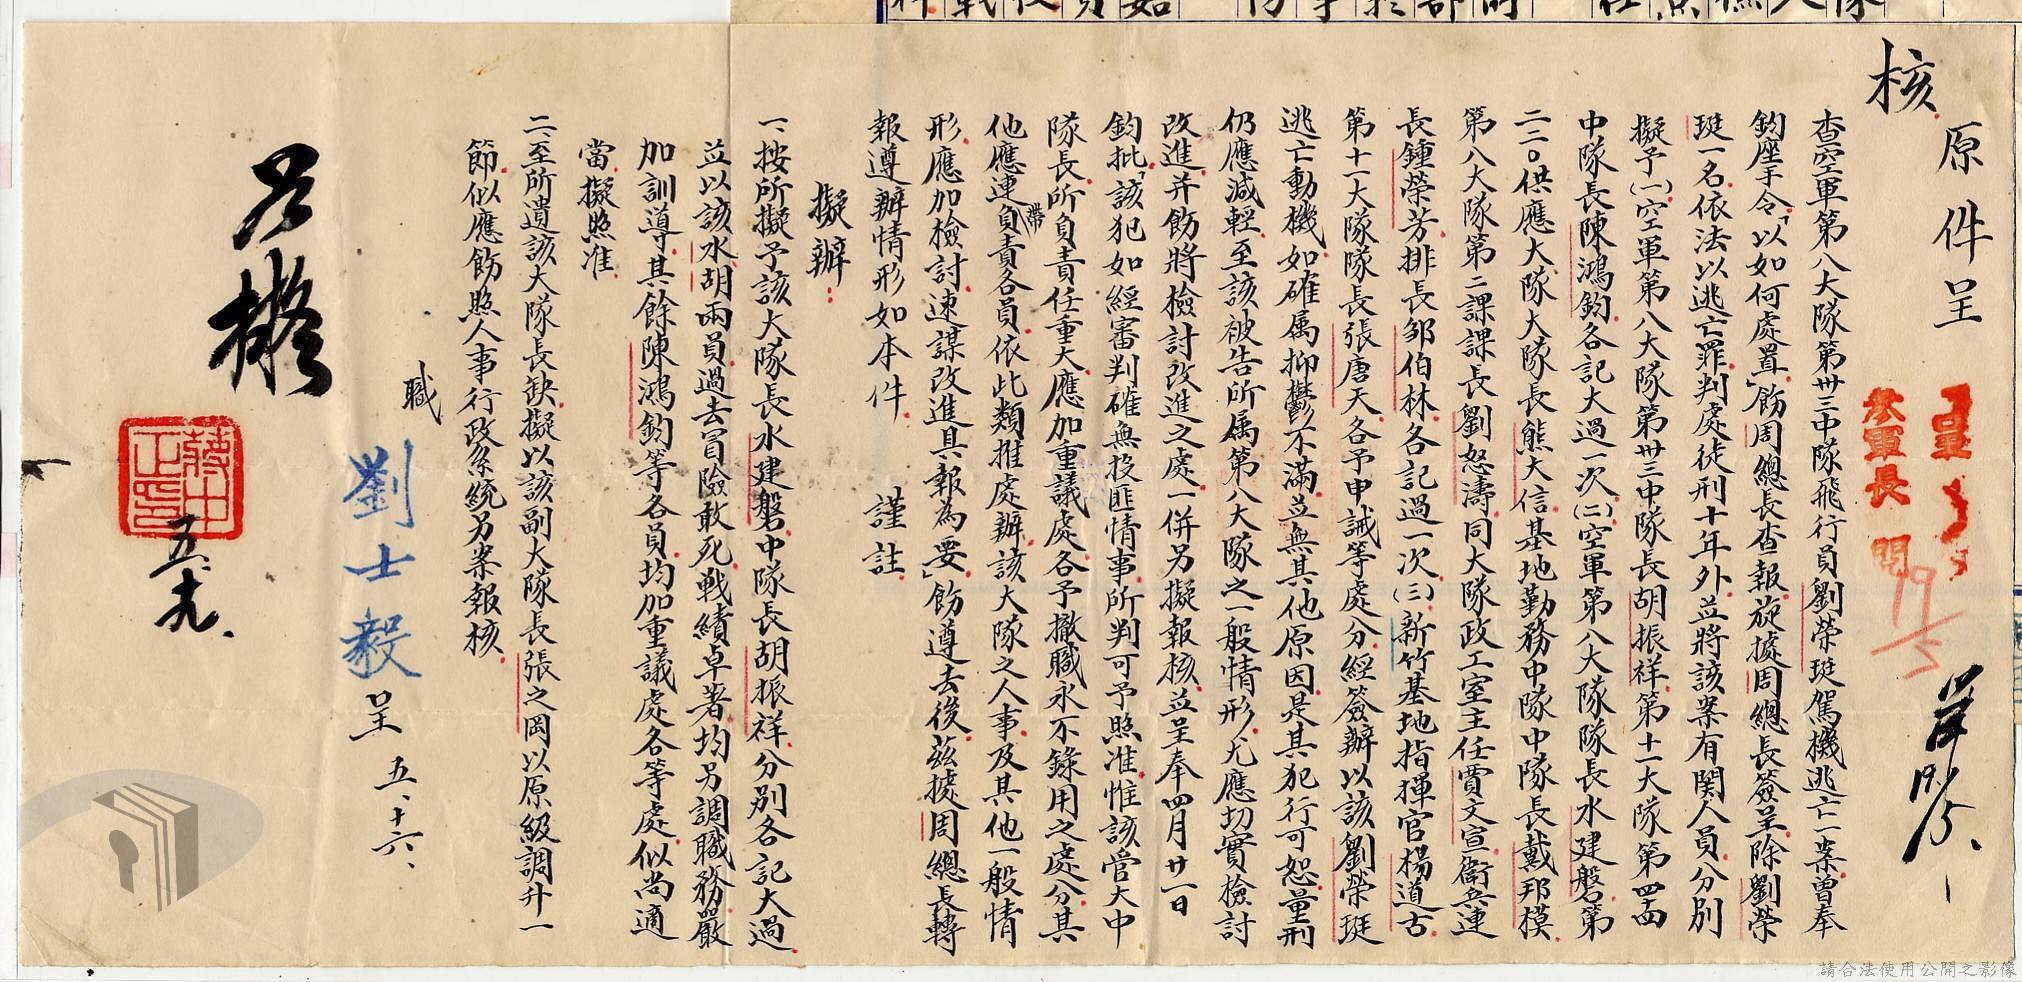 核
原件呈
查空軍第八大隊第卅三中隊飛行員劉榮珽駕機逃亡一案曾奉
鈞座手令「以如何處置」飭周總長查報旋據周總長簽呈除劉榮
珽一名依法以逃亡罪判處徒刑十年外並將該案有関人員分別
擬予(一)空軍第八大隊第卅三中隊長胡振祥第十一大隊第四十四
中隊長陳鴻鈞各記大過一次(二)空軍第八大隊隊長水建磐第
二二○供應大隊大隊長熊大信基地勤務中隊中隊長戴邦模
第八大隊第二課課長劉恕濤同大隊政工室主任賈文宣衛兵連
長鍾榮芳排長邹伯林各記過一次(三)新竹基地指揮官楊道古
第十一大隊隊長張唐天各予申誡等處分經簽辦以該劉榮珽
逃亡動機如確属抑鬱不滿並無其他原因是其犯行可恕量刑
仍應減輕至該被告所属第八大隊之一般情形尤應切實檢討
改進并飭將檢討改進之處一併另擬報核並呈奉四月廿一日
鈞批「該犯如經審判確無投匪情事所判可予照准惟該管大中
隊長所負責任重大應加重議處各予撤職永不錄用之處分其
他應連帶負責各員依此類推處辦該大隊之人事及其他一般情
形應加檢討速謀改進具報為要」飭遵去後茲據周總長轉
報遵辦情形如本件 謹註
擬辦：
一、按所擬予該大隊長水建磐中隊長胡振祥分別各記大過
並以該水胡兩員過去冒險敢死戰績卓著均另調職務嚴
加訓導其餘陳鴻鈞等各員均加重議處各等處似尚適
當擬照准
二、至所遺該大隊長缺擬以該副大隊長張之岡以原級調升一
節似應飭照人事行政系統另案報核
職 劉士毅 呈 五、十六、
如擬
蔣中正印
五、十九、
參軍長 閱
19/5
請合法使用公開之影像